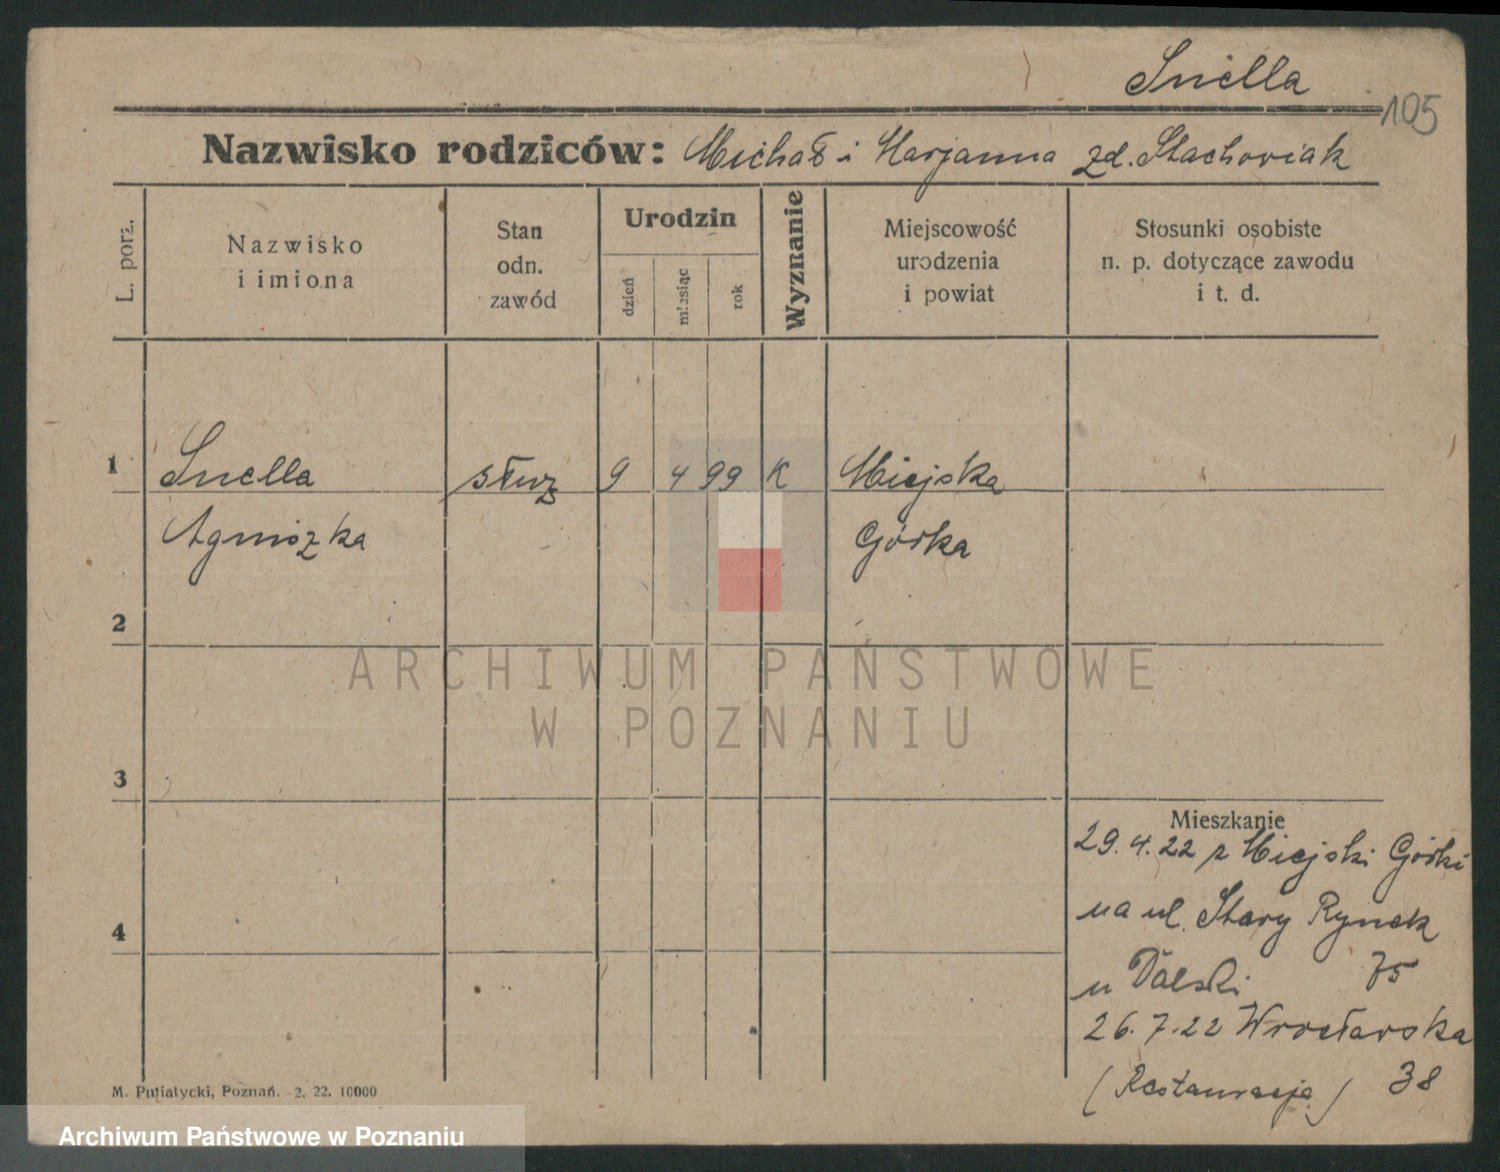 Snella
105
Nazwisko rodziców: Michał i Marjanna zd. Stachowiak
L. porz.
Nazwisko
i imiona
Stan
odn.
zawód
Urodzin
dzień
miesiąc
rok
Wyznanie
Miejscowość
urodzenia
i powiat
Stosunki osobiste
n. p. dotyczące zawodu
i t. d.
1 Snella służ 9 4 99 K Miejska
Agniszka Górka
2
ARCHIWUM PAŃSTWOWE
W POZNANIU
3
Mieszkanie
29.4.22 z Miejski Górki
na ul. Stary Rynek
4
u Dalski 75
26.7.22 Wrocławska
(Restauracja) 38
M. Putiatycki, Poznań. 2. 22. 10000
Archiwum Państwowe w Poznaniu